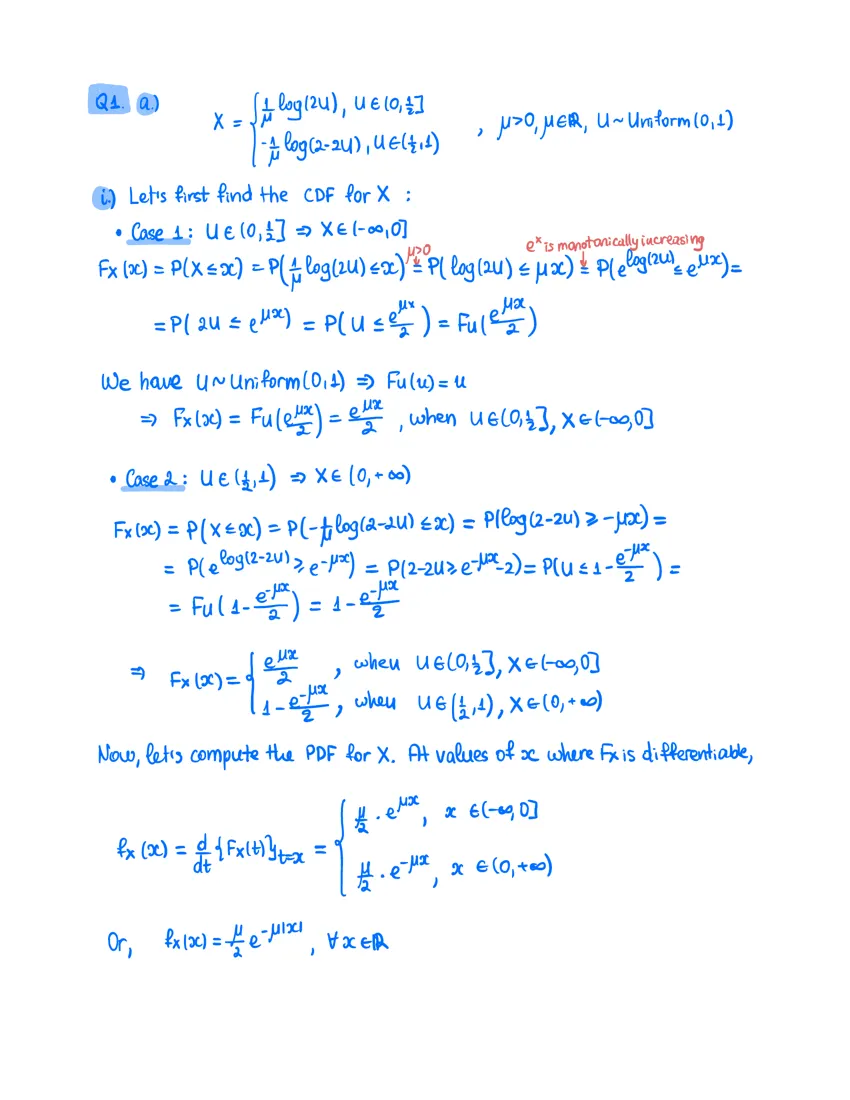 Q1. a.) X = { 1/μ log(2U), U ∈ (0, 1/2]
-1/μ log(2-2U), U ∈ (1/2, 1) , μ>0, μ∈ℝ, U ~ Uniform(0,1)
i.) Let's first find the CDF for X :
• Case 1: U ∈ (0, 1/2] ⇒ X ∈ (-∞, 0]
μ>0 e^x is monotonically increasing
Fx(x) = P(X ≤ x) = P(1/μ log(2U) ≤ x) = P(log(2U) ≤ μx) = P(e^log(2U) ≤ e^μx) =
= P(2U ≤ e^μx) = P(U ≤ e^μx/2) = Fu(e^μx/2)
We have U ~ Uniform(0,1) ⇒ Fu(u) = u
⇒ Fx(x) = Fu(e^μx/2) = e^μx/2 , when U ∈ (0, 1/2], X ∈ (-∞, 0]
• Case 2: U ∈ (1/2, 1) ⇒ X ∈ (0, +∞)
Fx(x) = P(X ≤ x) = P(-1/μ log(2-2U) ≤ x) = P(log(2-2U) ≥ -μx) =
= P(e^log(2-2U) ≥ e^-μx) = P(2-2U ≥ e^-μx-2) = P(U ≤ 1 - e^-μx/2) =
= Fu(1 - e^-μx/2) = 1 - e^-μx/2
⇒ Fx(x) = { e^μx/2 , when U ∈ (0, 1/2], X ∈ (-∞, 0]
1 - e^-μx/2 , when U ∈ (1/2, 1), X ∈ (0, +∞)
Now, let's compute the PDF for X. At values of x where Fx is differentiable,
fx(x) = d/dt {Fx(t)}t=x = { μ/2 · e^μx, x ∈ (-∞, 0]
μ/2 · e^-μx, x ∈ (0, +∞)
Or, fx(x) = μ/2 e^-μ|x| , ∀ x ∈ ℝ